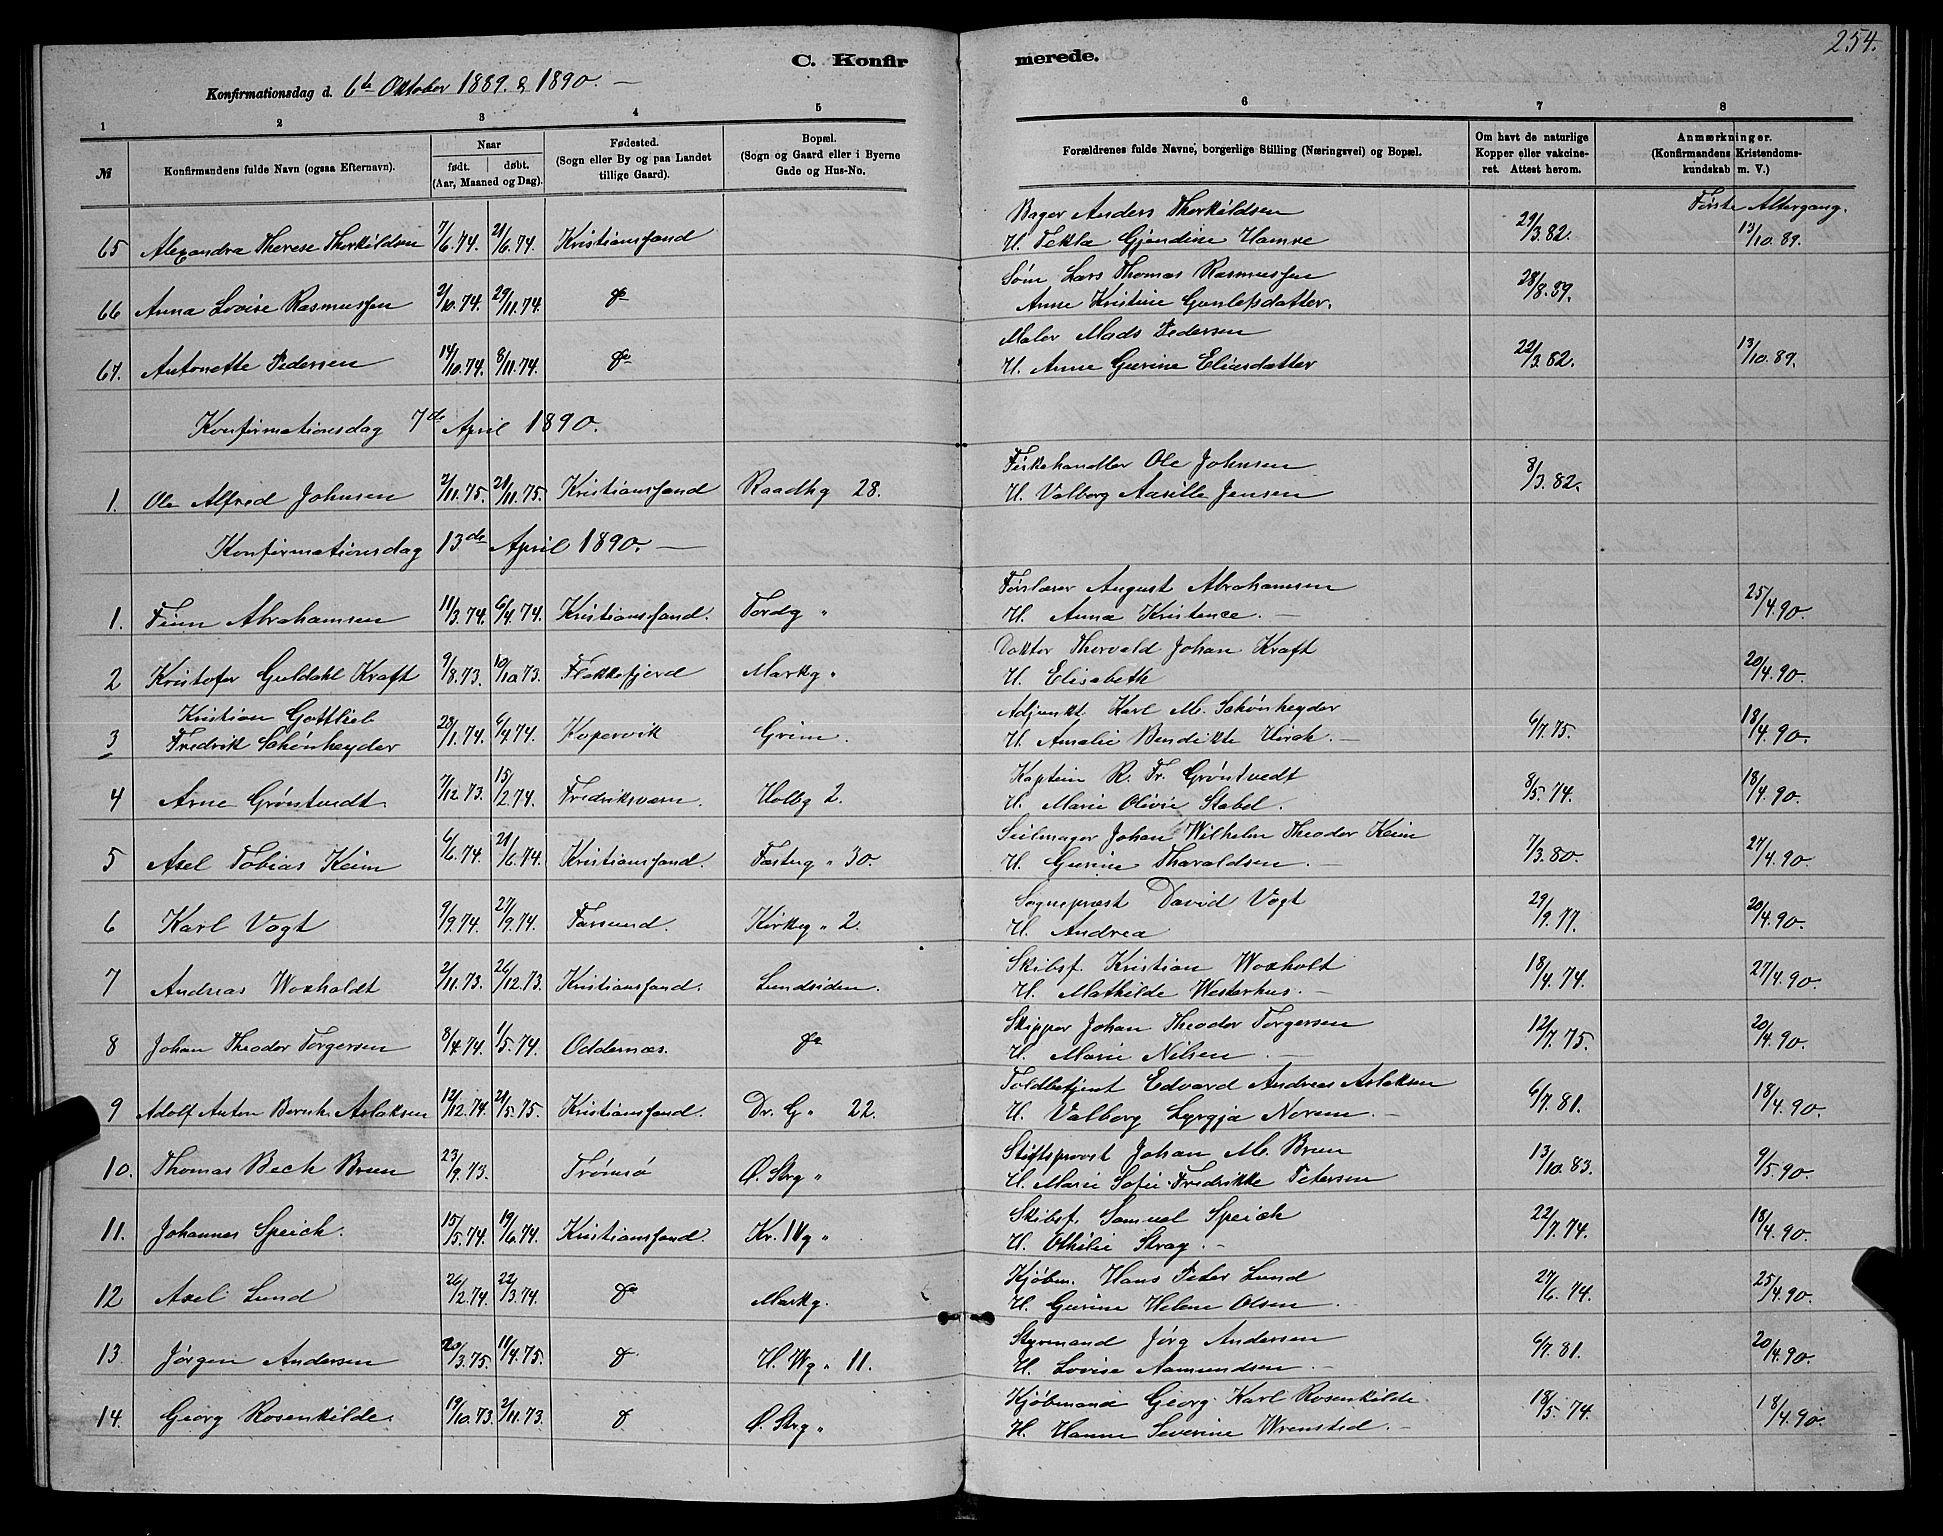 254.
C. Konfirmerede.
Konfirmationsdag d. 6te Oktober 1889. & 1890. —
1 2 3 4 5 6 7 8
№ Konfirmandens fulde Navn (ogsaa Efternavn). Naar født. døbt. (Aar, Maaned og Dag). Fødested. (Sogn eller By og paa Landet tillige Gaard). Bopæl. (Sogn og Gaard eller i Byerne Gade og Hus-No. Forældrenes fulde Navne, borgerlige Stilling (Næringsvei) og Bopæl. Om havt de naturlige Kopper eller vakcineret. Attest herom. Anmærkninger. (Konfirmandens Kristendomskundskab m. V.)
Første Altergang.
65 Alexandra Therese Therkildsen 7/6.74. 21/6.74. Kristianssand Bager Anders Therkildsen 29/3.82. 13/10.89.
H. Tekla Gjendine Hamre
66 Anna Lovise Rasmussen 2/10.74. 29/11.74. do Søm. Lars Thomas Rasmussen 28/8.89.
Anne Kristine Gunlefsdatter.
67. Antonette Pedersen 14/10.74. 8/11.74. do Maler Mads Pedersen 22/3.82. 13/10.89.
H. Anne Gurine Eliasdatter
Konfirmationsdag 7de April 1890.
1. Ole Alfred Johnsen 2/11.75. 21/11.75. Kristianssand Raadhg 28. Fiskehandler Ole Johnsen 8/3.82.
H. Valborg Aasille Jensen
Konfirmationsdag 13de April 1890. —
1. Finn Abrahamsen 11/3.74. 6/4.74. Kristianssand. Tordg " Førslærer August Abrahamsen 25/4.90.
H. Anna Kristence. —
2 Kristofer Guldahl Kraft 9/8.73. 19/10.73. Flekkefjord Markg " Doktor Thorvald Johan Kraft 20/4.90.
H. Elisabeth
3 Kristian Gottlieb Fredrik Schønheyder 28/1.74. 6/4.74. Kopervik Grim. Adjunkt. Karl M. Schønheyder 6/7.75. 18/4.90.
H. Amalie Bendikte Hirch. —
4 Arne Grøntvedt 7/12.73. 15/2.74. Fredriksværn. Holbg 2. Kaptein R. Fr. Grøntvedt 8/5.74. 18/4.90.
H. Marie Olivie Stabel.
5 Axel Tobias Keim 6/6.74. 21/6.74. Kristianssand. Fæstng " 30 Seilmager Johan Wilhelm Theodor Keim 7/3.80. 27/4.90.
H. Gurine Tharaldsen. —
6 Karl Vogt 9/9.74. 27/9.74. Farsund. Kirkeg " 2. Sogneprest David Vogt 29/9.77. 20/4.90.
H. Andrea
7 Andreas Woxholdt 2/11.73. 26/12.73. Kristianssand. Lundsiden. Skibsf. Kristian Woxholt 18/4.74. 27/4.90.
H. Mathilde Westerhus. —
8 Johan Theodor Torgersen 8/4.74. 1/5.74. Oddernæs. do Skipper Johan Theodor Torgersen 12/7.75. 20/4.90.
H. Marie Nilsen. —
9 Adolf Anton Bernh. Aslaksen 12/12.74. 21/5.75. Kristianssand. Dr. G " 22. Toldbetjent Edvard Andreas Aslaksen 6/7.81. 18/4.90.
H. Valborg Lyngja Norem. —
10. Thomas Bech Brun 23/9.73. Tromsø Ø. Strg " Stiftsprovst Johan M. Brun 13/10.83. 9/5.90.
H. Marie Sofie Fredrikke Petersen
11. Johannes Speich. 15/5.74. 19/6.74. Kristianssand. Kr. IVg " Skibsf. Samuel Speich 22/7.74. 18/4.90.
H. Othilie Stray. —
12 Axel Lund 26/2.74. 22/3.74. do Markg. Kjøbm. Hans Peter Lund 27/6.74. 25/4.90.
H. Gurine Helene Olsen.
13. Jørgen Andersen 20/3.75. 11/4.75. do H. Wg " 11. Styrmand Jørg Andersen 6/7.81. 20/4.90.
H. Lovise Aamundsen. —
14. Georg Rosenkilde. 19/10.73. 2/11.73. do Ø. Strg " Kjøbmand Georg Karl Rosenkilde. 18/5.74. 18/4.90.
H. Hanne Severine Wrensted. —